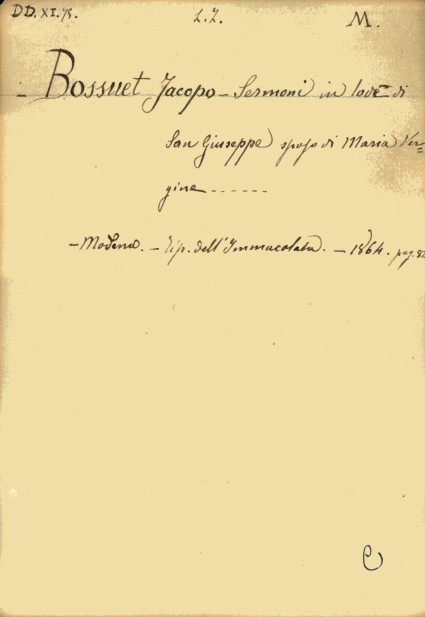 DD. XI. 75. L.Z. M.
- Bossuet Jacopo - Sermoni in lode di
San Giuseppe sposo di Maria Ver=
gine - - - - - - -
- Modena. - Tip. dell'Immacolata. - 1864. pag. 82
e